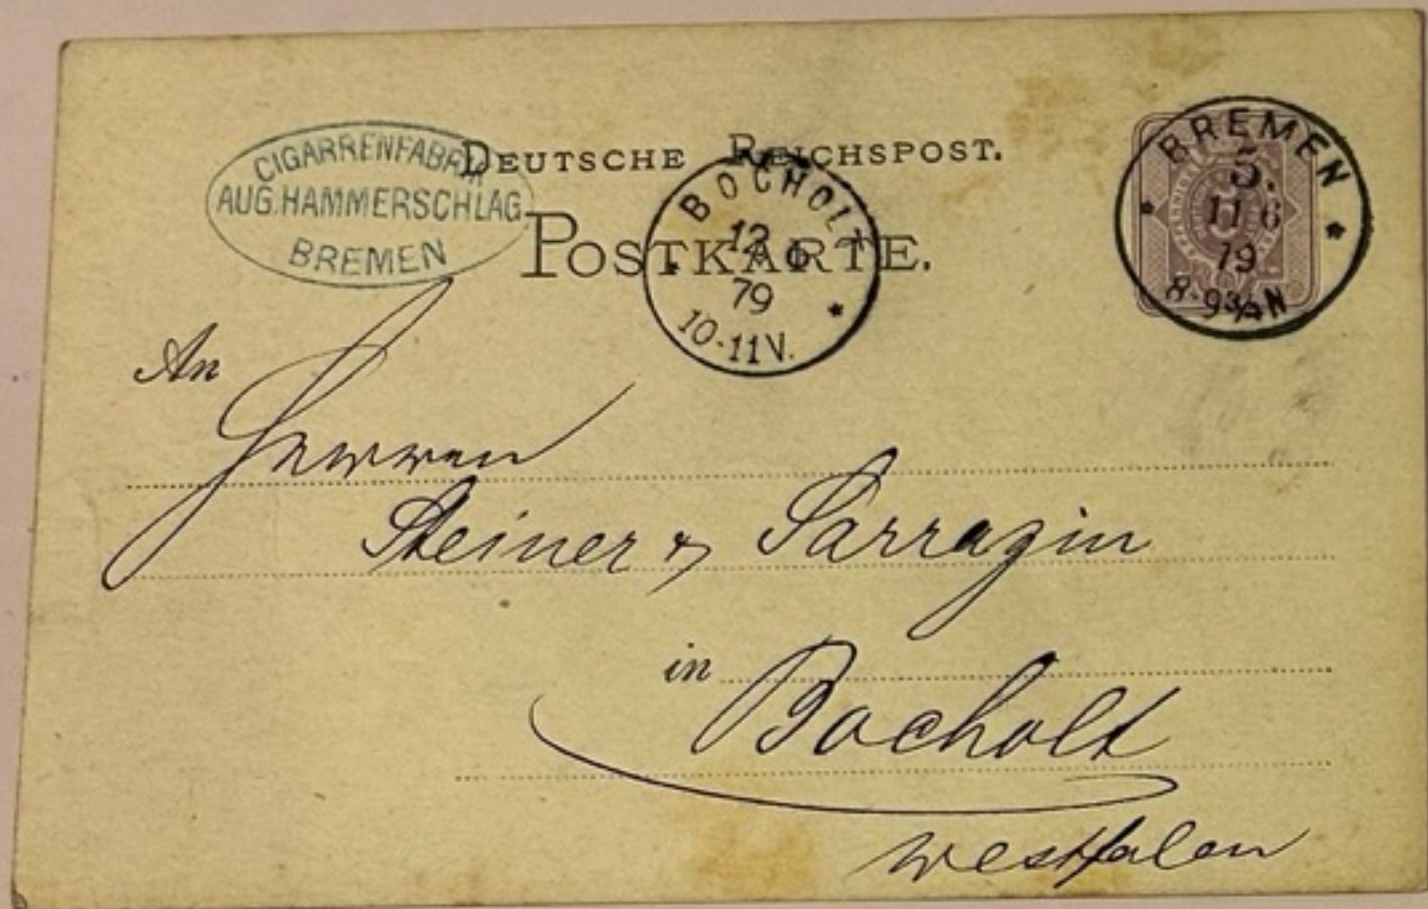 CIGARRENFABRIK
AUG. HAMMERSCHLAG
BREMEN
DEUTSCHE REICHSPOST.
POSTKARTE.
BOCHOLT
12 6
79
10-11V.
BREMEN
5.
11 6
79
8-9¾N
An
Herren
Steiner & Sarrazin
in
Bocholt
Westfalen